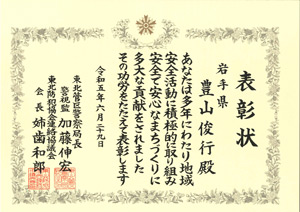 表彰状
岩手県
豊山俊行殿
あなたは多年にわたり地域
安全活動に積極的に取り組み
安全で安心なまちづくりに
多大な貢献をされました
その功労をたたえて表彰します
令和五年六月二十九日
東北管区警察局長
警視監 加藤伸宏
東北防犯協会連絡協議会
会長 姉歯和郎